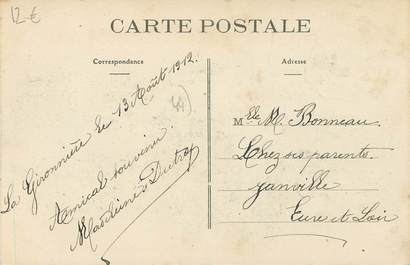 12 €
CARTE POSTALE
Correspondance
Adresse
La Gironnière le 13 Août 1912.
44
Amical souvenir
Madeleine Dutroy
Melle M. Bonneau
Chez ses parents
Janville
Eure et Loir